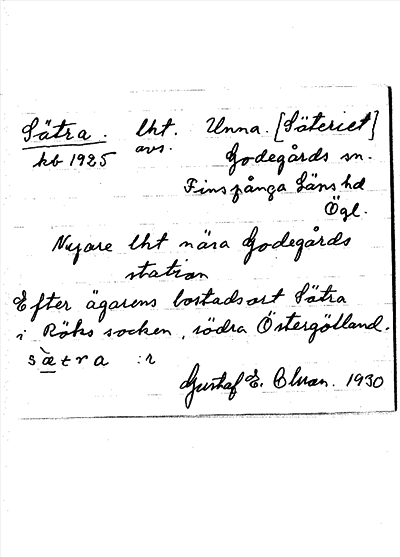 Sätra. lht. Unna. [Säteriet]
kb 1925 avs. Godegårds sn.
Finspånga Läns hd
Ögl.
Nyare lht nära Godegårds
station
Efter ägarens bostadsort Sätra
i Röks socken, södra Östergötland.
sæ̀tra :r
Gustaf E. 1930